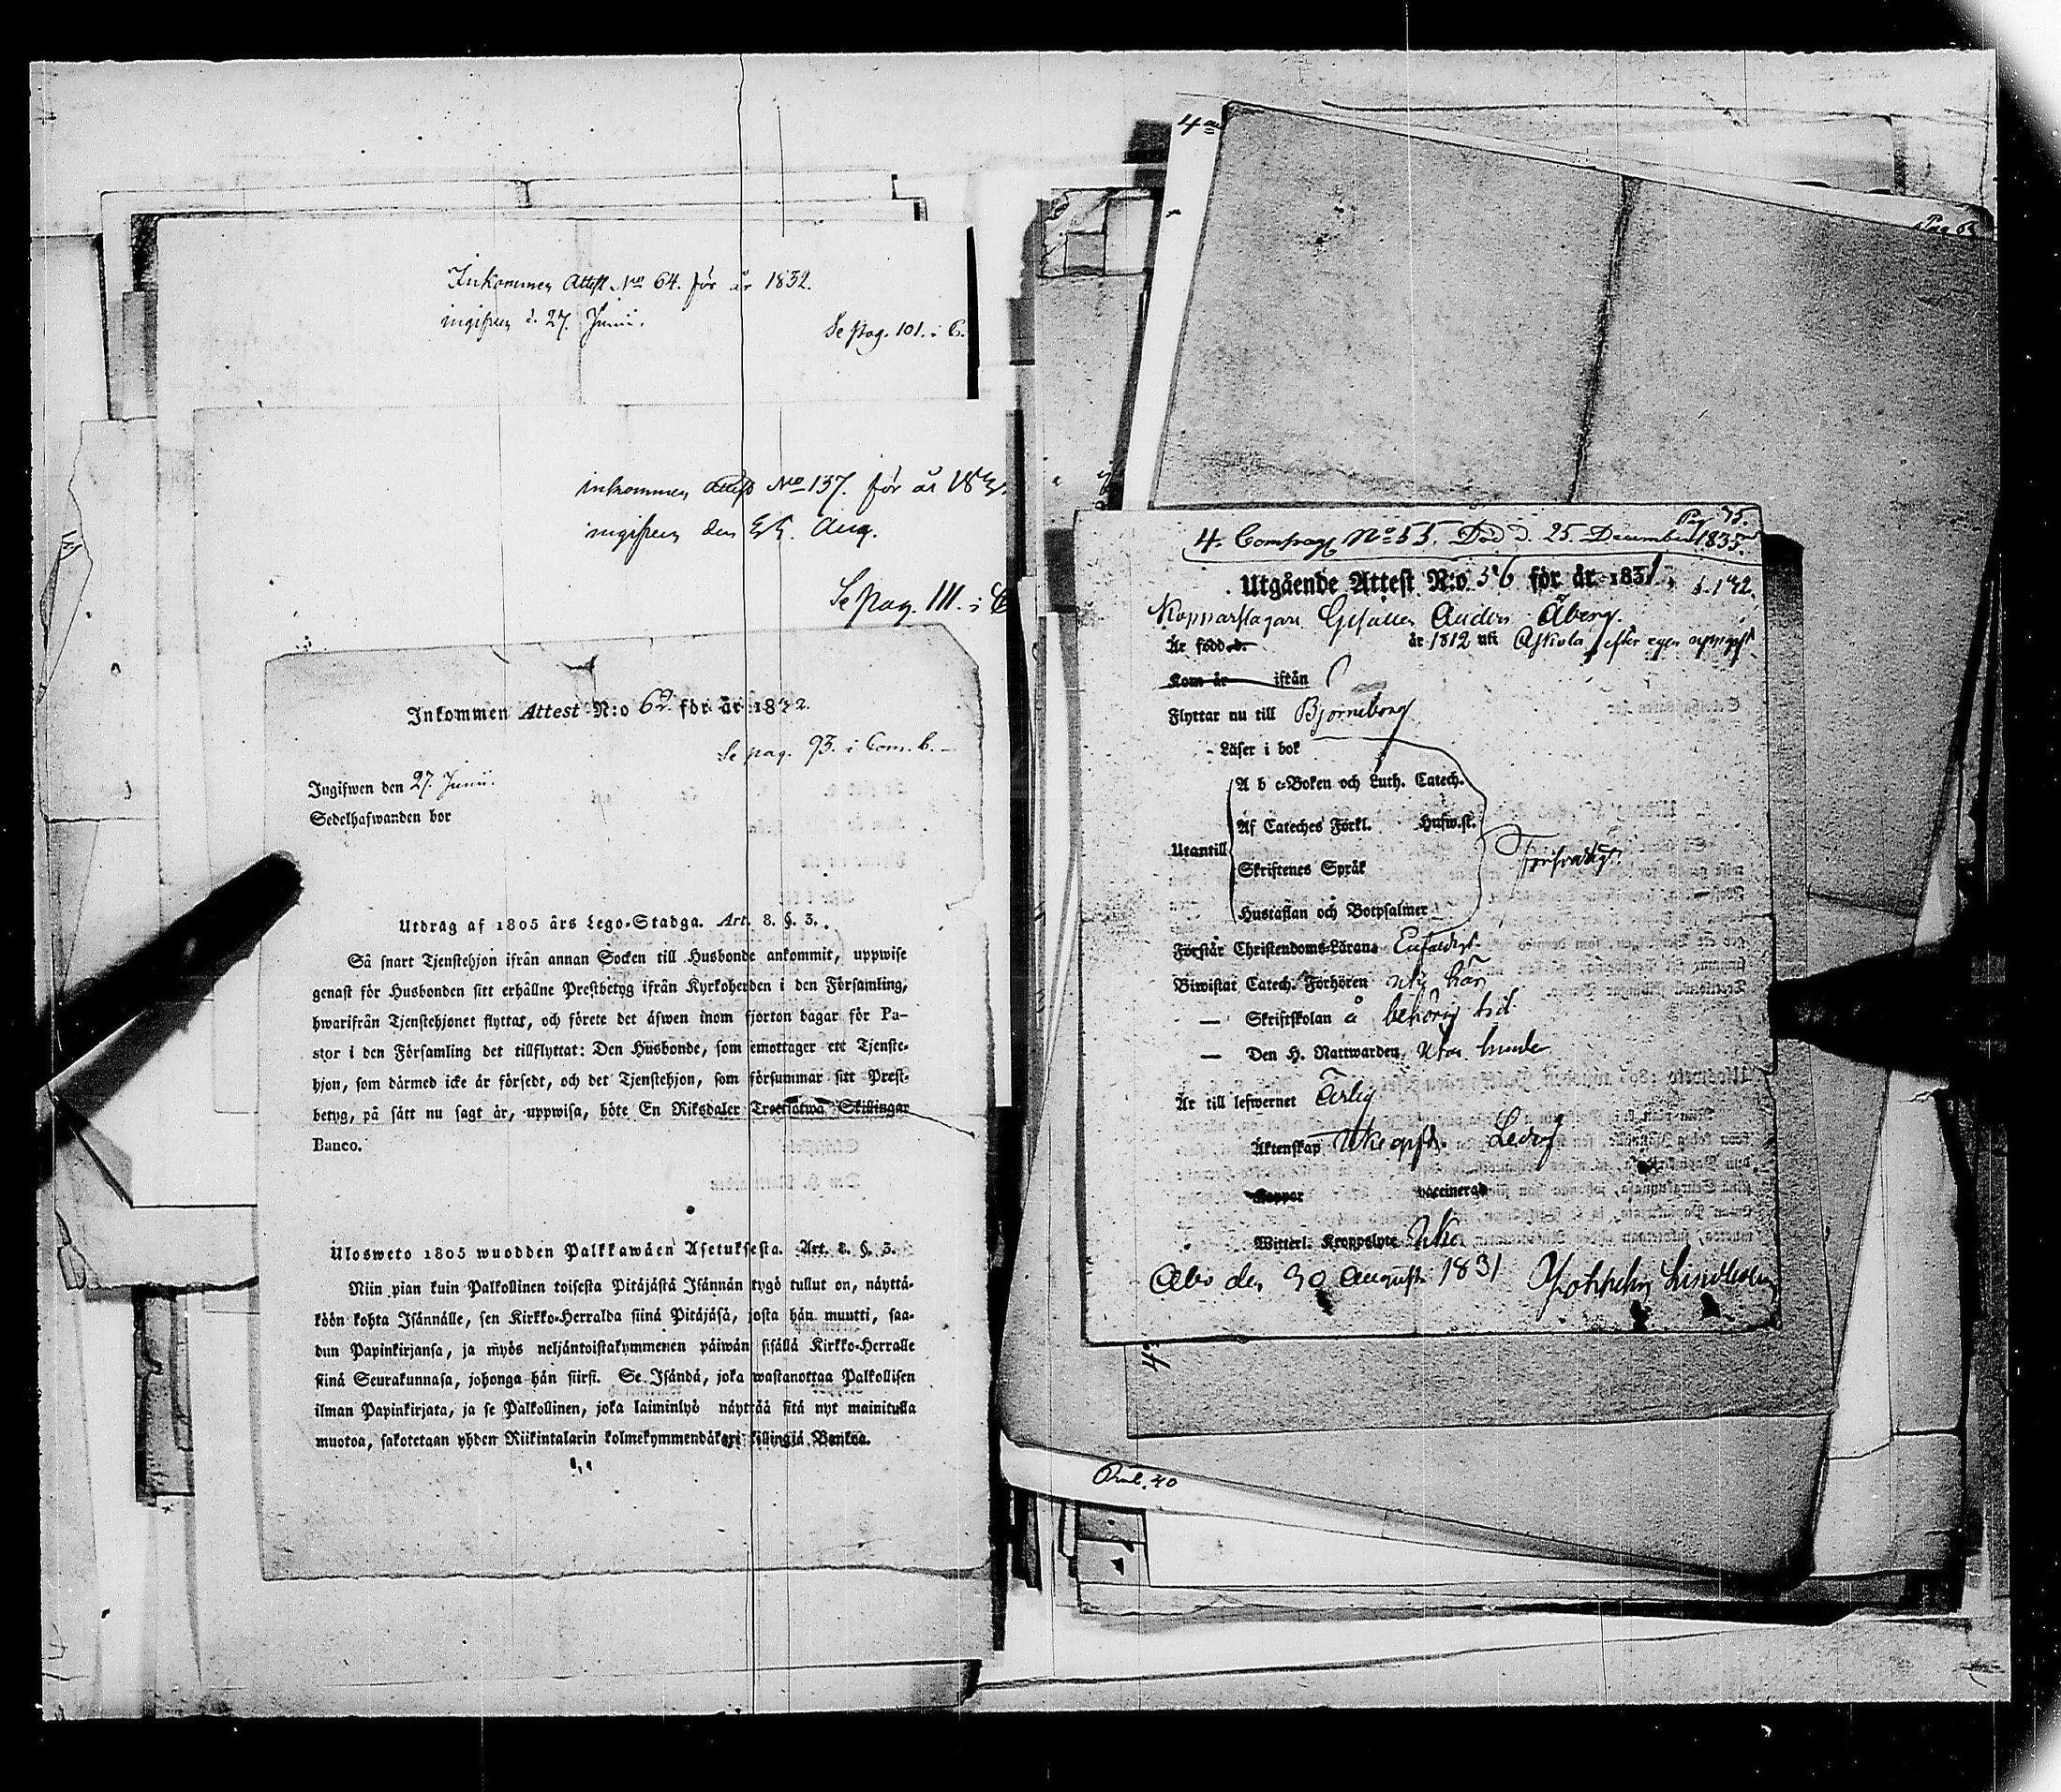 Inkommen Attest No 64. för år 1832.
ingifven d. 27. Junii.
Se pag. 101. i C.
inkommen Attest No 137. för år 183
ingifven den Aug.
Se pag. 111. i C
Inkommen Attest N:o 62. för år 1832.
Se pag. 93. i Com. b.
Ingifwen den 27. Junii.
Sedelhafwanden bor
Utdrag af 1805 års Lego-Stadga. Art. 8. §. 3.
Så snart Tjenstehjon ifrån annan Socken till Husbonde ankommit, uppwise
genast för Husbonden sitt erhållne Prestbetyg ifrån Kyrkoherden i den Församling,
hwarifrån Tjenstehjonet flyttat, och förete det äfwen inom fjorton dagar för Pa-
stor i den Församling det tillflyttat: Den Husbonde, som emottager ett Tjenste-
hjon, som därmed icke är försedt, och det Tjenstehjon, som försummar sitt Prest-
betyg, på sått nu sagt är, uppwisa, böte En Riksdaler Trettiotwå Skillingar
Banco.
Ulosweto 1805 wuodden Palkkawäen Asetuksesta. Art. 8. §. 3.
Niin pian kuin Palkollinen toisesta Pitäjästä Isännän tygö tullut on, näyttä-
köön kohta Isännälle, sen Kirkko-Herralda siinä Pitäjäsä, josta hän muutti, saa-
dun Papinkirjansa, ja myös neljäntoistakymmenen päiwän sisällä Kirkko-Herralle
siinä Seurakunnasa, johonga hän siirsi. Se Isändä, joka wastanottaa Palkollisen
ilman Papinkirjata, ja se Palkollinen, joka laiminlyö näyttää sitä nyt mainitulla
muotoa, sakotetaan yhden Riikintalarin kolmekymmendäkaxi killingiä Bankoa.
4
Pag. 75.
4. Compag No 55. Död d. 25. December 1835.
Utgående Attest N:o 56 för år 1831.
Kopparslagare Gesällen Anders Åberg.
Är född d. år 1812 uti Askola efter egen uppgift
Kom år ifrån
Flyttar nu till Björneborg
Läser i bok
A b c-Boken och Luth. Catech.
Af Cateches Förkl. Husw.st.
Utantill
Skriftenes Språk
Hustaflan och Botpsalmer
Förswarligt.
Förstår Christendoms-Läran Enfaldigt.
Biwistat Catech. Förhören
— Skriftskolan å behörig tid
— Den H. Nattwarden
Är till lefwernet Ärlig
Äktenskap Ledig
Koppor vaccinerad
Witterl. Kroppslyte
Åbo den 30 Augusti 1831